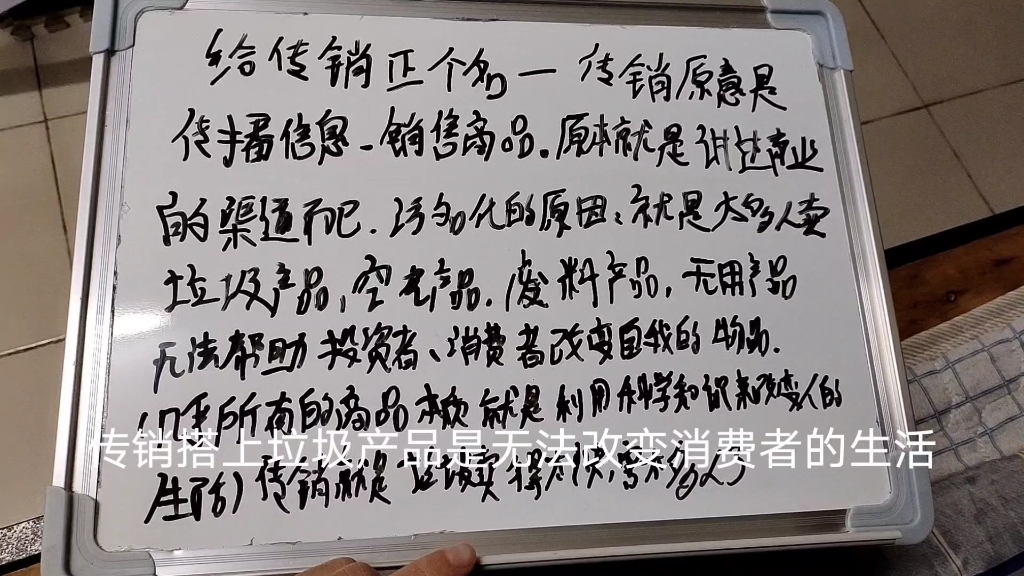 给传销正个名一传销原意是
传播信息-销售商品。原本就是促进商业
的渠道而已.污名化的原因:就是大多人卖
垃圾产品,空气产品.废料产品,无用产品
无法帮助投资者、消费者改变自我的物品.
(几乎所有的商品本质就是利用科学知识来改变人的
生活)传销就是
传销搭上垃圾产品是无法改变消费者的生活